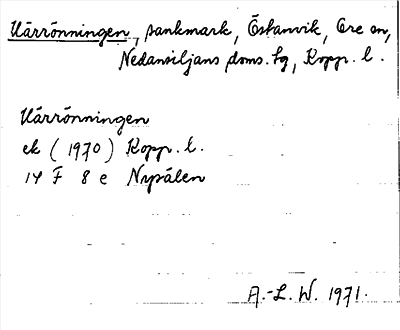 Kärrönningen, sankmark, Östanvik, Ore sn,
Nedansiljans doms. tg, Kopp. l.
Kärrönningen
ek (1970) Kopp. l.
14 F 8 e Nysälen
A.-L. W. 1971.